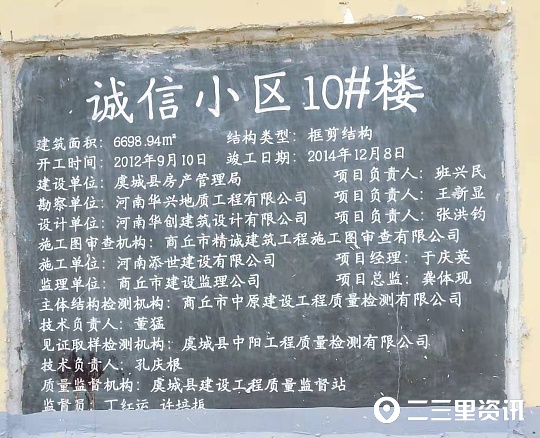 诚信小区10#楼
建筑面积：6698.94㎡ 结构类型：框剪结构
开工时间：2012年9月10日 竣工日期：2014年12月8日
建设单位：虞城县房产管理局 项目负责人：班兴民
勘察单位：河南华兴地质工程有限公司 项目负责人：王新显
设计单位：河南华创建筑设计有限公司 项目负责人：张洪钧
施工图审查机构：商丘市精诚建筑工程施工图审查有限公司
施工单位：河南添世建设有限公司 项目经理：于庆英
监理单位：商丘市建设监理公司 项目总监：龚体现
主体结构检测机构：商丘市中原建设工程质量检测有限公司
技术负责人：董猛
见证取样检测机构：虞城县中阳工程质量检测有限公司
技术负责人：孔庆根
质量监督机构：虞城县建设工程质量监督站
监督员：丁红运 许培振
二三里资讯